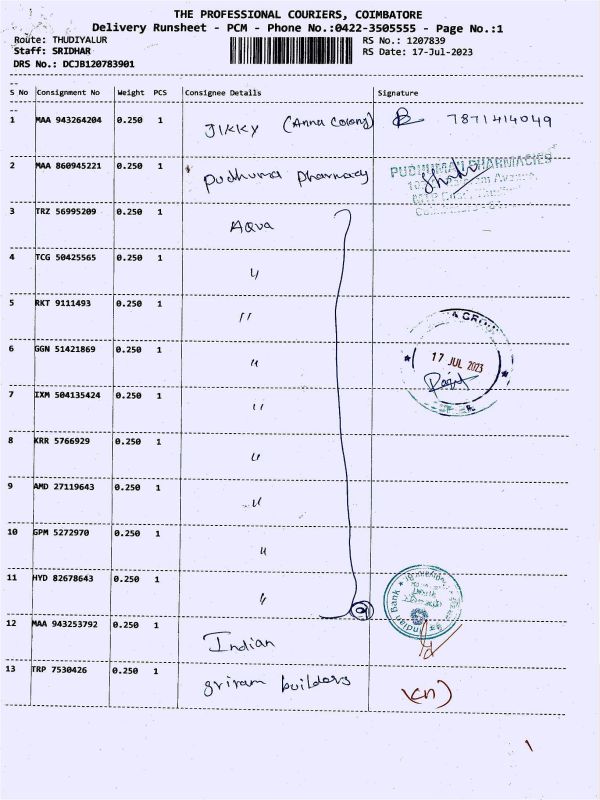 THE PROFESSIONAL COURIERS, COIMBATORE
Delivery Runsheet - PCM - Phone No.:0422-3505555 - Page No.:1
Route: THUDIYALUR
Staff: SRIDHAR
DRS No.: DCJB120783901
RS No.: 1207839
RS Date: 17-Jul-2023
S No Consignment No Weight PCS Consignee Details Signature
1 MAA 943264204 0.250 1 JIKKY (Anna Colony) 7871414049
2 MAA 860945221 0.250 1 Pudhuma Pharmacy PUDHUMAI PHARMACIES
3 TRZ 56995209 0.250 1 Aqua
4 TCG 50425565 0.250 1 "
5 RKT 9111493 0.250 1 "
6 GGN 51421869 0.250 1 " 17 JUL 2023
7 IXM 504135424 0.250 1 "
8 KRR 5766929 0.250 1 "
9 AMD 27119643 0.250 1 "
10 GPM 5272970 0.250 1 "
11 HYD 82678643 0.250 1 " Bank
12 MAA 943253792 0.250 1 Indian
13 TRP 7530426 0.250 1 Sriram builders